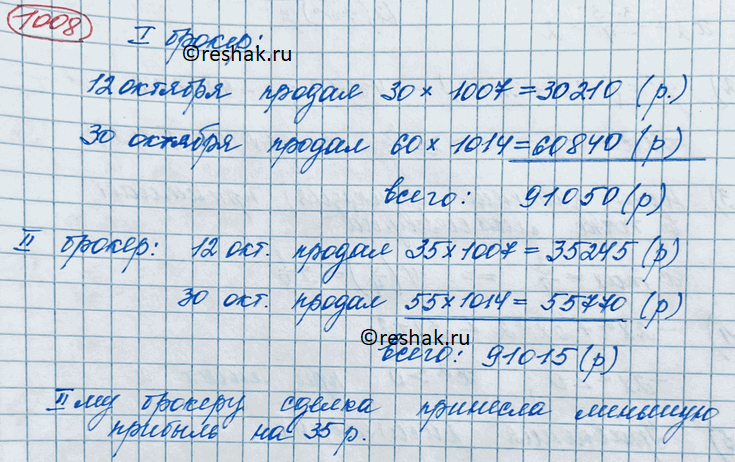 1008
I брокер:
©reshak.ru
12 октября продал 30 × 1007 = 30210 (р.)
30 октября продал 60 × 1014 = 60840 (р)
всего: 91050 (р)
II брокер: 12 окт. продал 35 × 1007 = 35245 (р)
30 окт. продал 55 × 1014 = 55770 (р)
©reshak.ru
всего: 91015 (р)
II му брокеру сделка принесла меньшую
прибыль на 35 р.